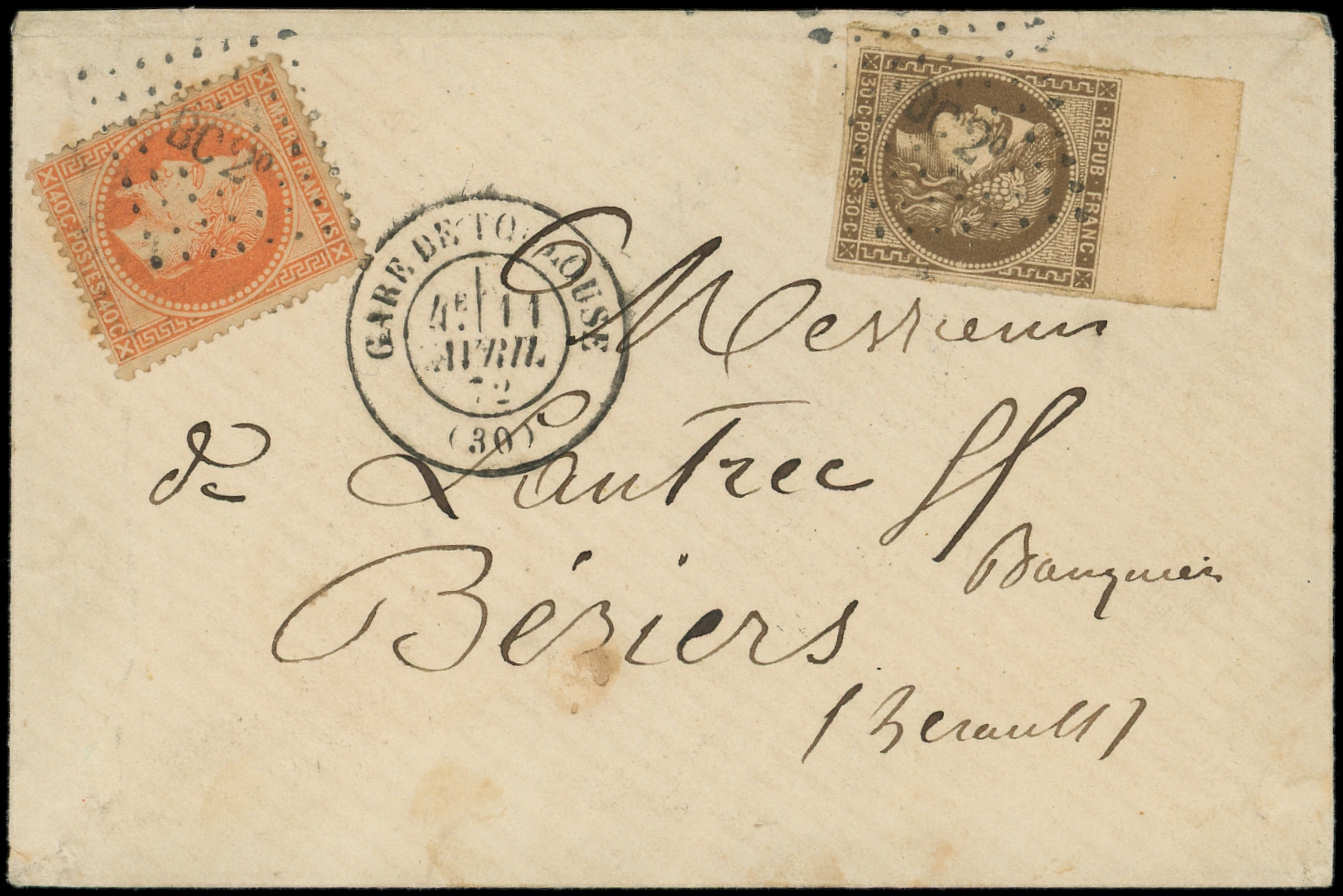 EMPIRE FRANÇAIS
BC 2º
40C. POSTES 40C.
REPUB · FRANC ·
BC 2º
30 · C · POSTES · 30 · C ·
GARE DE TOULOUSE
4E 11
AVRIL
72
(30)
Messieurs
de Lautrec ff
Banquiers
Béziers
(herault)